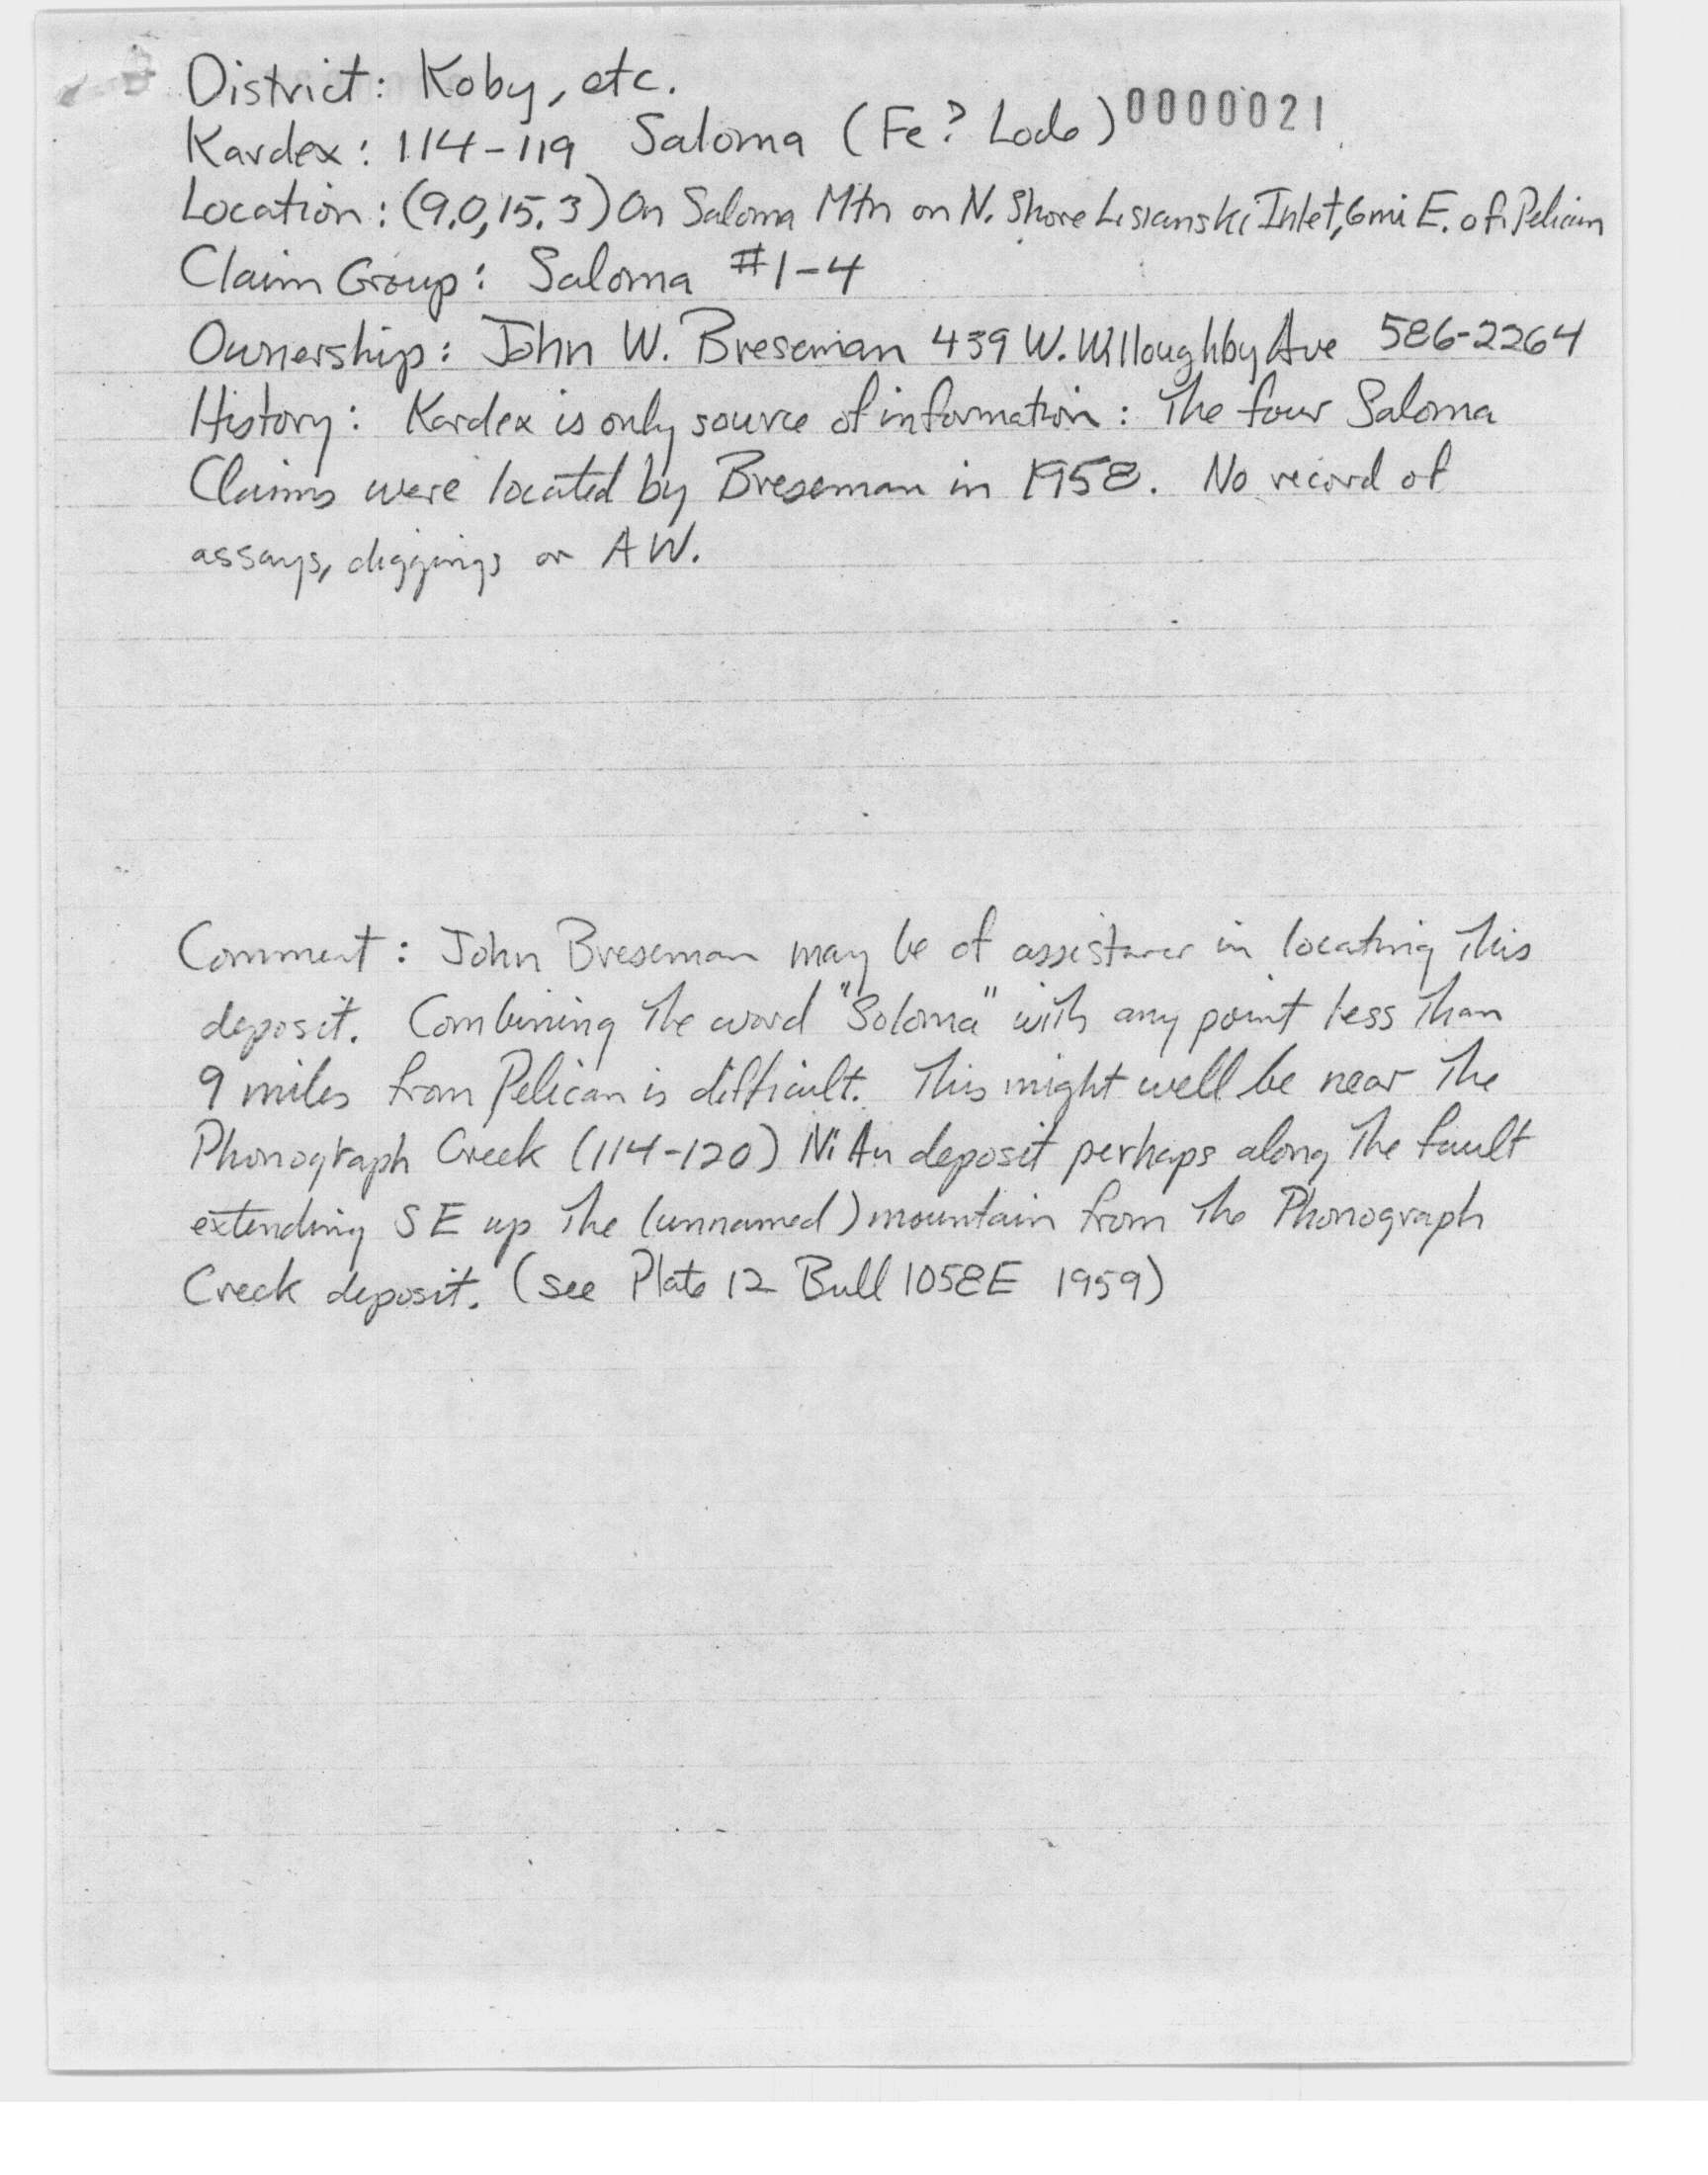 District: Koby, etc.
Kardex: 114-119 Saloma (Fe? Lode) 0000021
Location: (9.0, 15.3) On Saloma Mtn on N. Shore Lisianski Inlet, 6mi E. of Pelican
Claim Group: Saloma #1-4
Ownership: John W. Breseman 439 W. Willoughby Ave 586-2264
History: Kardex is only source of information: The four Saloma
Claims were located by Breseman in 1958. No record of
assays, diggings or AW.
Comment: John Breseman may be of assistance in locating This
deposit. Combining The word "Soloma" with any point less Than
9 miles from Pelican is difficult. This might well be near The
Phonograph Creek (114-120) Ni Au deposit perhaps along The fault
extending SE up The (unnamed) mountain from The Phonograph
Creek deposit. (see Plate 12 Bull 1058E 1959)